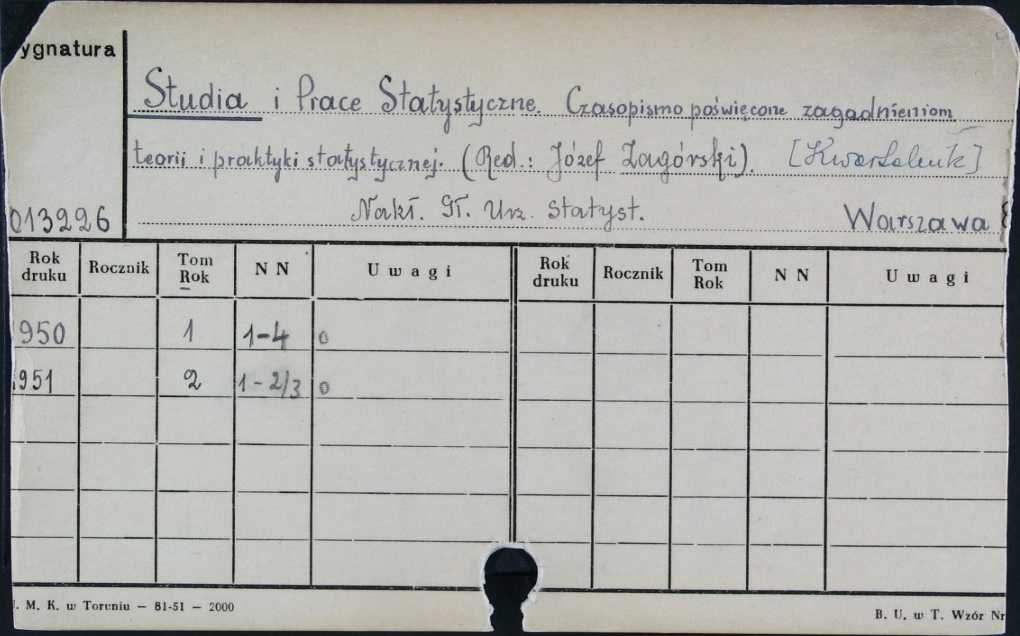 ygnatura
Studia i Prace Statystyczne. Czasopismo poświęcone zagadnieniom
teorii i praktyki statystycznej. (Red.: Józef Zagórski). [Kwartalnik]
Nakł. Gł. Urz. Statyst. Warszawa
013226
Rok druku Rocznik Tom Rok N N Uwagi Rok druku Rocznik Tom Rok N N Uwagi
950 1 1-4 0
1951 2 1-2/3 0
. M. K. w Toruniu — 81-51 — 2000 B. U. w T. Wzór Nr